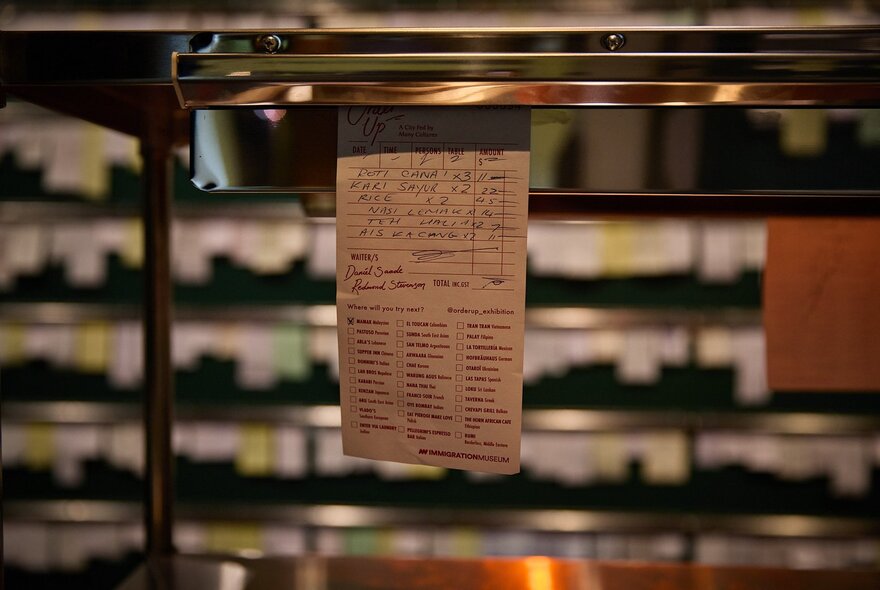 Order
Up
A City Fed by
Many Cultures
DATE TIME PERSONS TABLE AMOUNT
$
ROTI CANAI x3 11
KARI SAYUR x2 22
RICE x2 45
NASI LEMAK x 14
TEH HALIA x2 7
AIS KACANG x2 11
WAITER/S
Daniel Sande
Redmond Stevenson TOTAL INC GST
Where will you try next? @orderup_exhibition
MAMAK Malaysian
PASTUSO Peruvian
ABLA'S Lebanese
SUPPER INN Chinese
DOMINIC'S Italian
LAU BROS
KABABI Persian
KENZAN Japanese
BKK South East Asian
VLADO'S
Southern European
ENTER VIA LAUNDRY
Indian
EL TOUCAN Colombian
SUNDA South East Asian
SAN TELMO Argentinean
AKWAABA Ghanaian
CHAE Korean
WARUNG AGUS Balinese
NANA THAI Thai
FRANCE-SOIR French
OYE BOMBAY Indian
EAT PIEROGI MAKE LOVE
Polish
PELLEGRINI'S ESPRESSO
BAR Italian
TRAN TRAN Vietnamese
PALAY Filipino
LA TORTILLERÍA Mexican
HOFBRÄUHAUS German
OTARDI Ukrainian
LAS TAPAS Spanish
LOKU Sri Lankan
TAVERNA Greek
CHEVAPI GRILL Balkan
THE HORN AFRICAN CAFE
Ethiopian
RUMI
Borderless, Middle Eastern
IMMIGRATIONMUSEUM